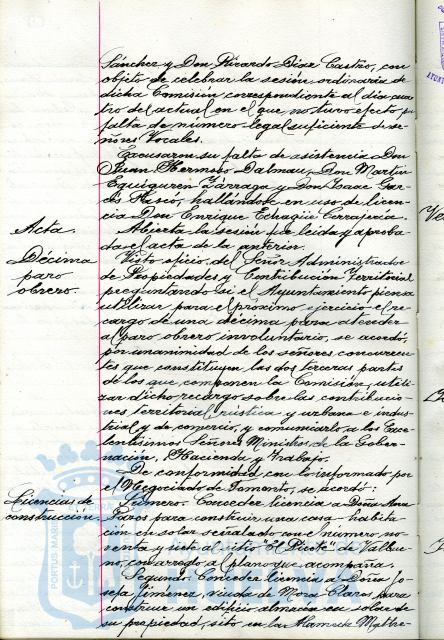 Sánchez y Don Ricardo Díaz Castro, con
objeto de celebrar la sesión ordinaria de
dicha Comisión correspondiente al día cua
tro del actual en el que no tuvo efecto por
falta de número legal suficiente de se-
ñores Vocales.
Excusaron su falta de asistencia Don
Juan Hermoso Dalmau, Don Martín
Equiguren Zárraga y Don Isaac
hallándose en uso de licen-
cia Don Enrique Echagüe
Acta.
Abierta la sesión fue leída y aproba-
da el acta de la anterior.
Décima
paro
obrero.
Visto oficio del Señor Administrador
de Propiedades y Contribución Territorial
preguntando si el Ayuntamiento piensa
utilizar para el próximo ejercicio el re-
cargo de una décima para atender
al paro obrero involuntario, se acordó,
por unanimidad de los señores concurren
tes que constituyen las dos terceras partes
de los que componen la Comisión, utili-
zar dicho recargo sobre las contribucio-
nes territorial, rústica y urbana e indus-
trial y de comercio, y comunicarlo a los Exce-
lentísimos Señores Ministros de la Gober-
nación, Hacienda y Trabajo.
De conformidad con lo informado por
el Negociado de Fomento, se acordó:
Licencias de
construcción.
Primero: Conceder licencia a Doña Ana
para construir una casa-habita
ción en solar señalado con el número no-
venta y uno al sitio "El Picote" de Valbue-
no, con arreglo al plano que acompaña.
Segundo: Conceder licencia a Doña Jo-
sefa Jiménez, viuda de Mora Claros para
construir un edificio almacén en solar de
su propiedad, sito en la Alameda
PORTUS MARIS